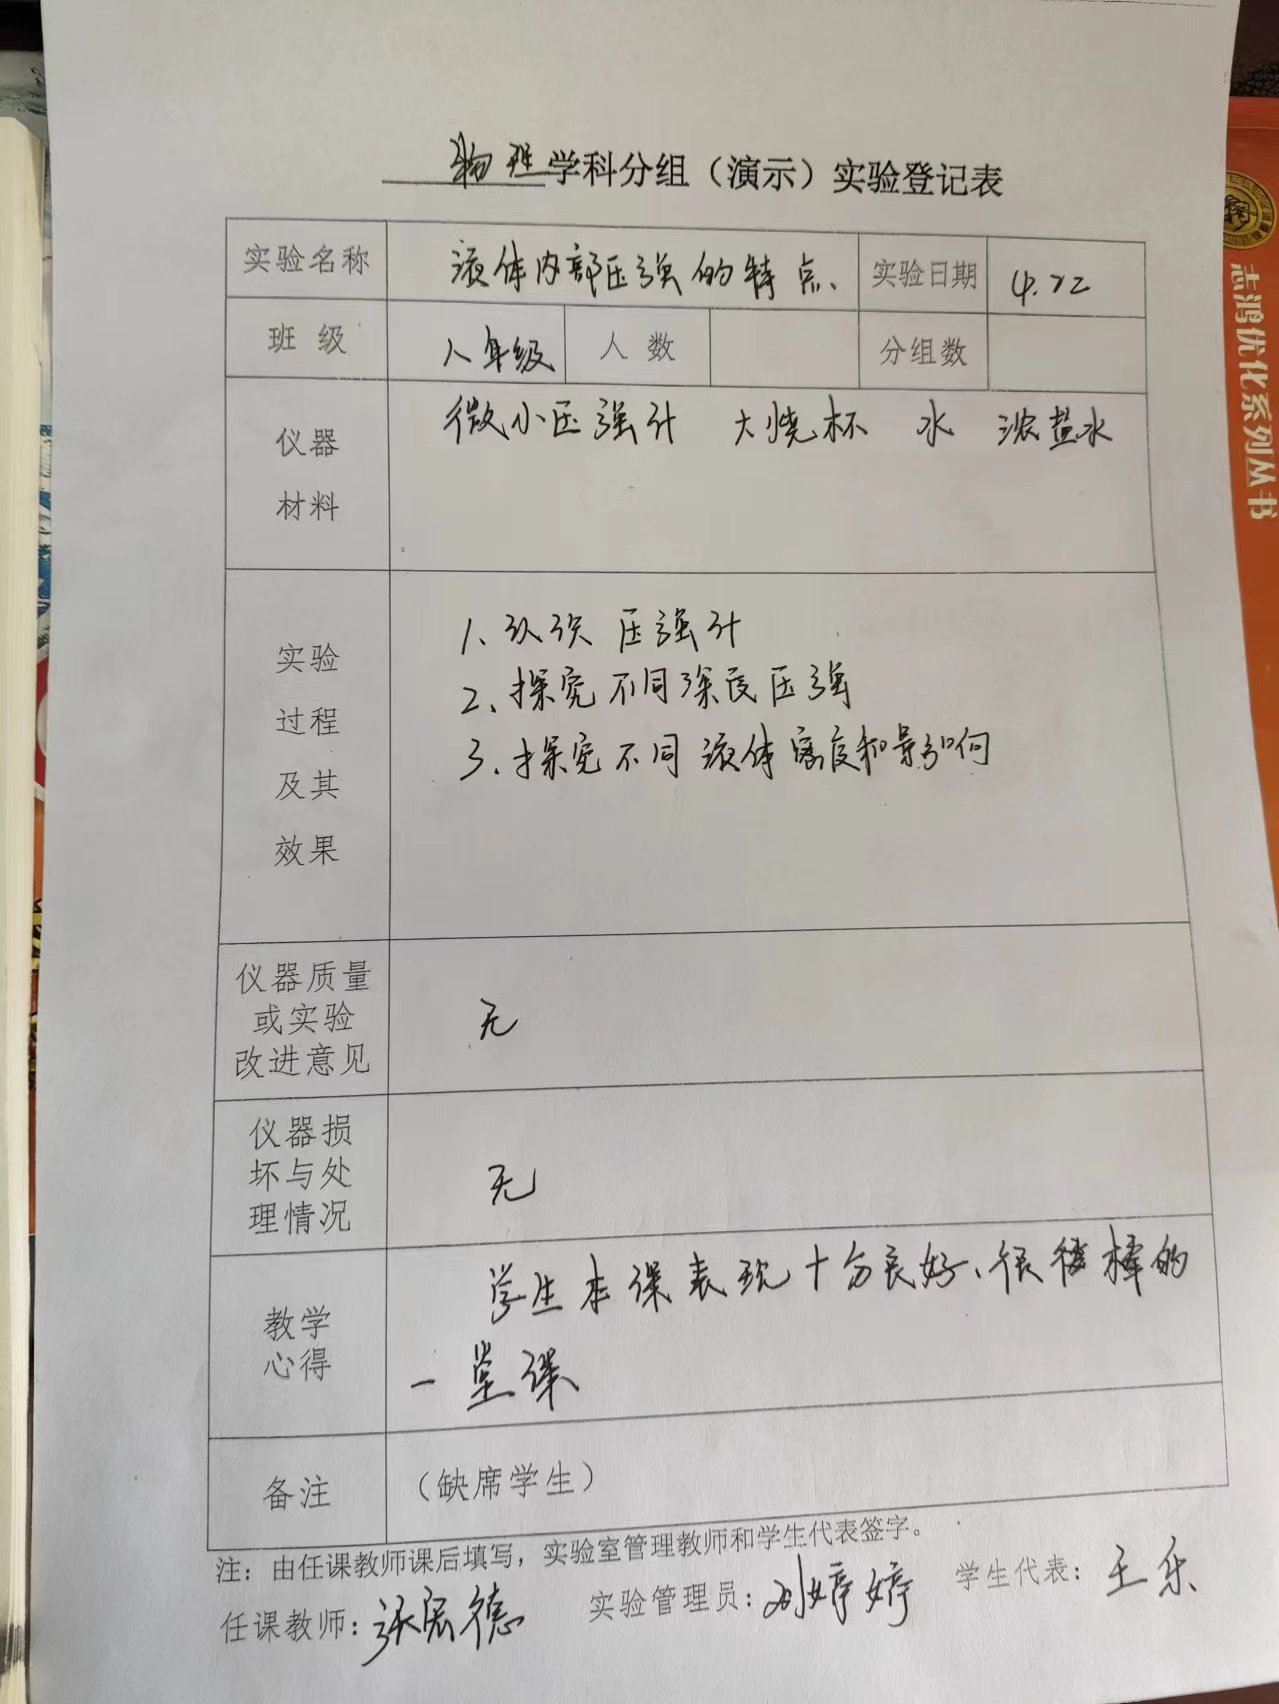 物理学科分组（演示）实验登记表
实验名称 液体内部压强的特点、 实验日期 4.22
班 级 八年级 人 数 分组数
仪器 材料 微小压强计 大烧杯 水 浓盐水
实验 过程 及其 效果
1、认识压强计
2、探究不同深度压强
3、探究不同液体密度和影响
仪器质量
或实验
改进意见
无
仪器损
坏与处
理情况
无
教学
心得
学生本课表现十分良好、很棒的
一堂课
备注 （缺席学生）
注：由任课教师课后填写，实验室管理教师和学生代表签字。
任课教师： 实验管理员：刘婷婷 学生代表：王乐
志鸿优化系列丛书